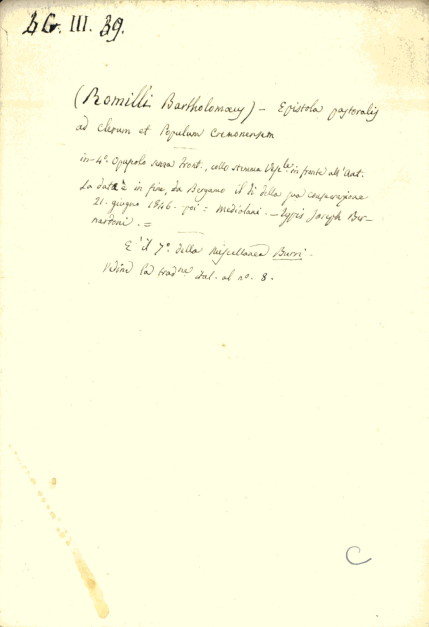 LG. III. 39.
(Romilli Bartholomæus) - Epistola pastoralis
ad clerum et Populum Cremonensem
in-4°. Opuscolo senza front., collo stemma Vesc.le in fronte all'Aut.
La data è in fine, da Bergamo il dì della sua consecrazione
21. giugno 1846. poi = Mediolani. - typis Joseph Ber-
nardoni. =
E' il 7°. della Miscellanea Burri.
Vedine la trad.ne ital. al n°. 8.
C